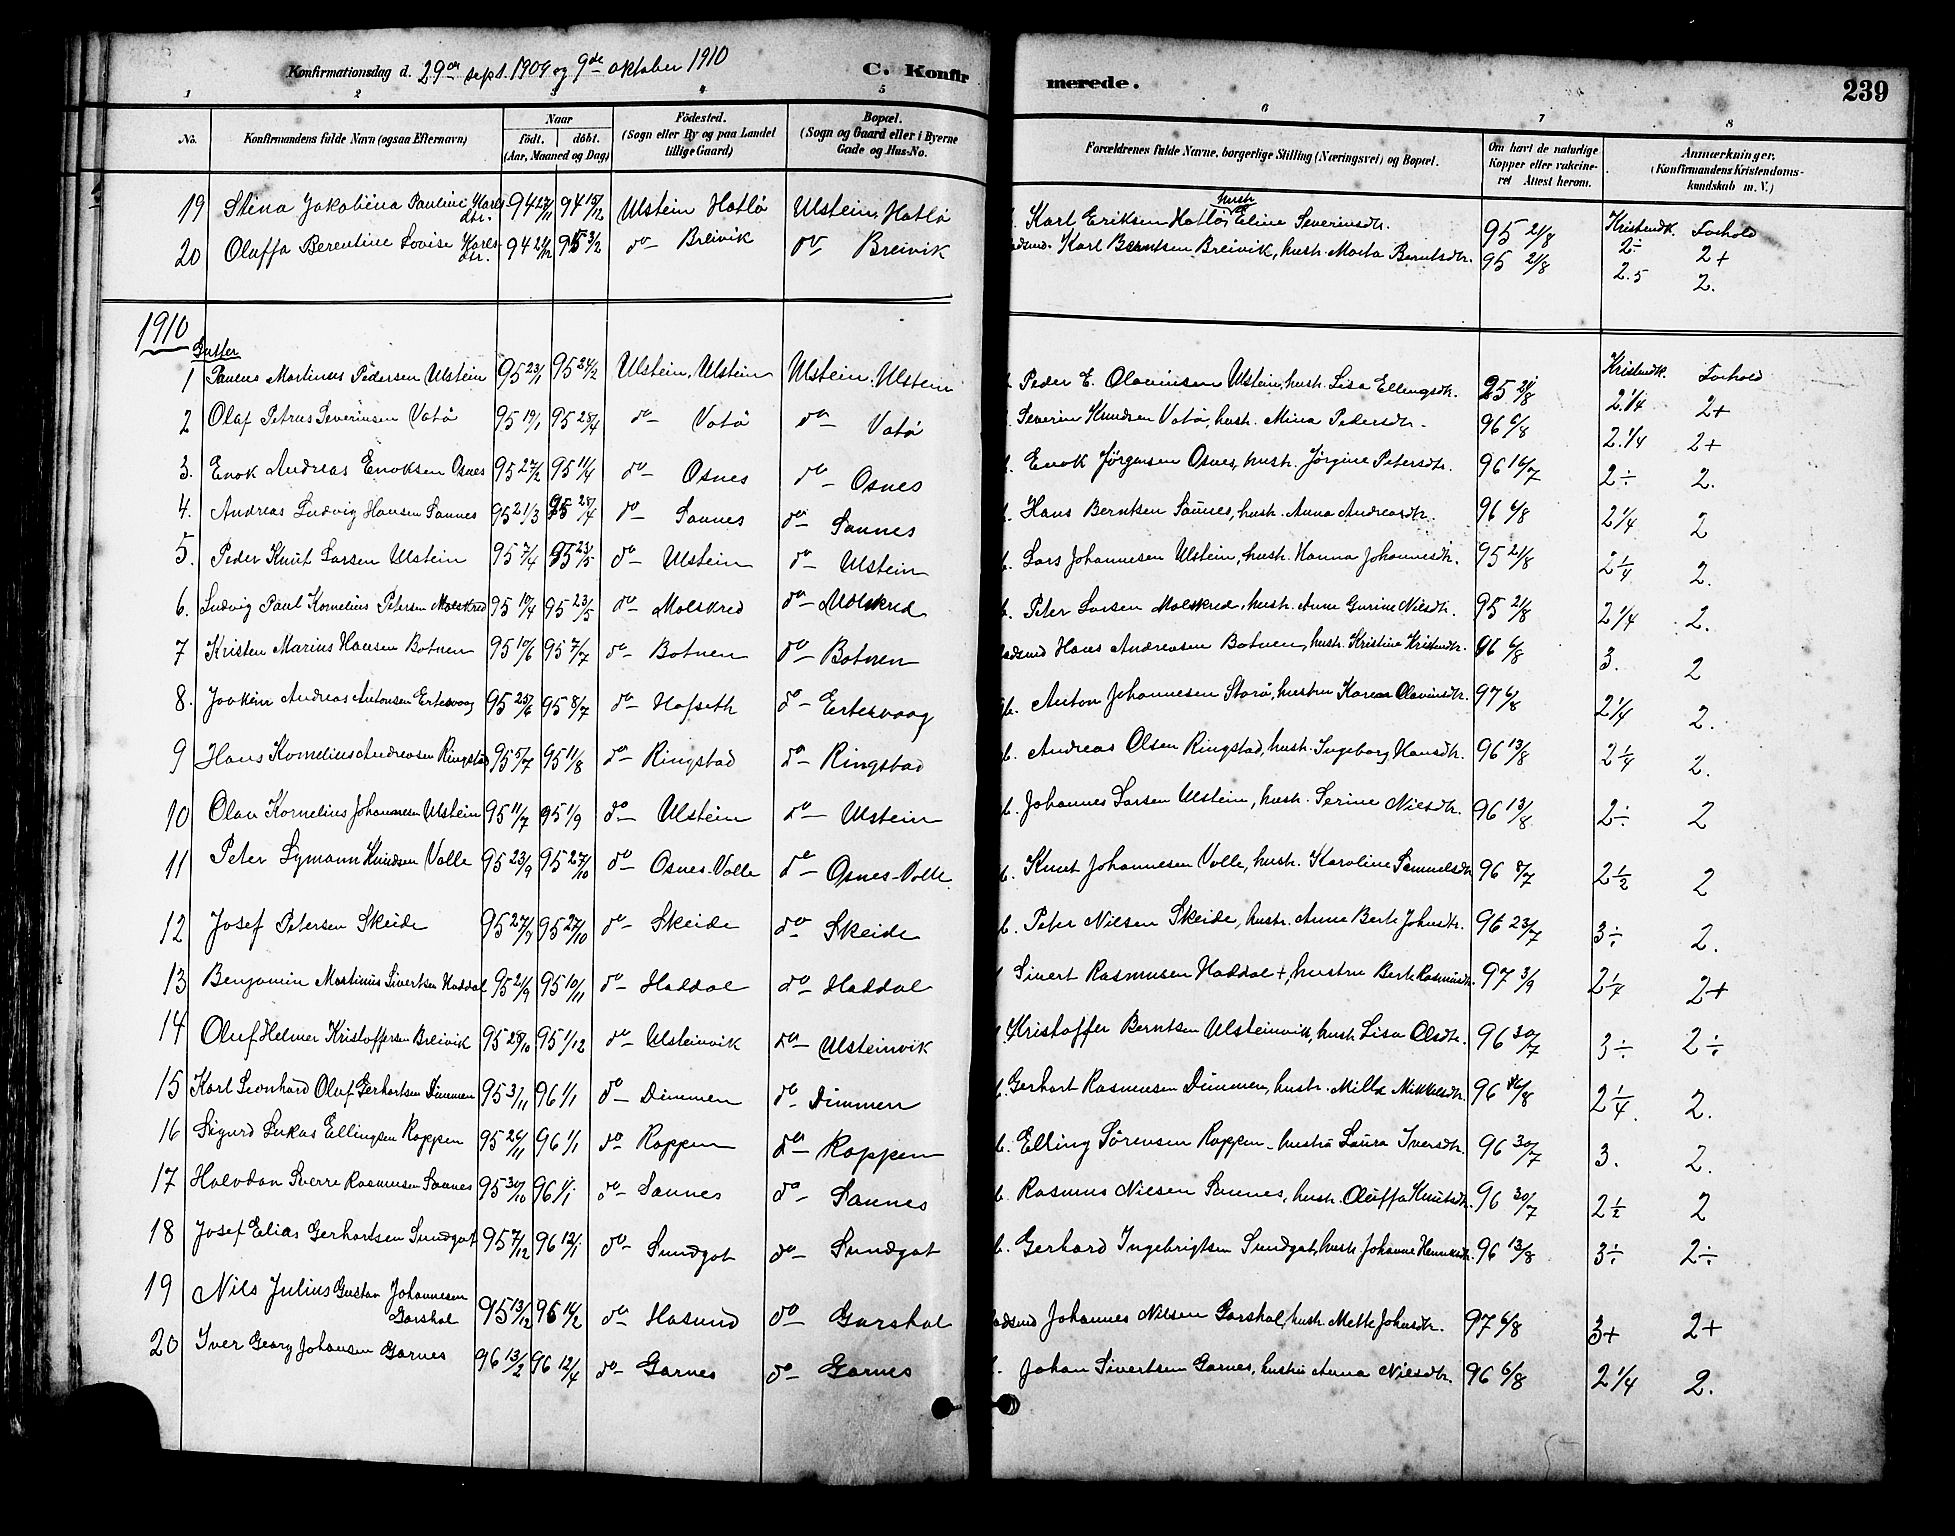 Konfirmationsdag d. 29de sept. 1909 og 9de oktober 1910 C. Konfirmerede. 239
1 2 3 4 5 6 7 8
No. Konfirmandens fulde Navn (ogsaa Efternavn) Naar födt. döbt. (Aar, Maaned og Dag) Födested. (Sogn eller By og paa Landet tillige Gaard) Bopæl. (Sogn og Gaard eller i Byerne Gade og Hus-No. Forældrenes fulde Navne, borgerlige Stilling (Næringsvei) og Bopæl. Om havt de naturlige Kopper eller vakcineret Attest herom. Anmærkninger. (Konfirmandens Kristendomskundskab m. V.)
Kristendk. Forhold
19 Stina Jakobina Pauline Karlsdtr. 94 94 15/12 Ulstein Hatlö Ulstein, Hatlö Karl Eriksen Hatlö, hustr. Eline Severinsdtr. 95 21/8 2÷ 2+
20 Oluffa Berentine Lovise Karlsdtr. 94 95 3/2 do Breivik do Breivik Karl Berntsen Breivik, hustr. Marta Berntsdtr. 95 21/8 2.5 2.
1910
Gutter
Kristendk. Forhold
1 Paulus Martinus Pedersen Ulstein 95 23/1 95 24/2 Ulstein, Ulstein Ulstein, Ulstein Peder E. Olavinsen Ulstein, hustr. Lisa Ellingsdtr. 95 21/8 2.1/4 2+
2 Olaf Petrus Severinsen Vatö 95 19/1 95 28/4 do Vatö do Vatö Severin Knudsen Vatö, hustr. Mina Pedersdtr. 96 6/8 2.1/4 2+
3. Enok Andreas Enoksen Osnes 95 27/2 95 11/4 do Osnes do Osnes Enok Jörgensen Osnes, hustr. Jörgine Petersdtr. 96 16/7 2÷ 2.
4. Andreas Ludvig Hansen Saunes 95 21/3 95 28/4 do Saunes do Saunes Hans Berntsen Saunes, hustr. Anna Andreasdtr. 96 6/8 2 1/4 2
5. Peder Knut Larsen Ulstein 95 7/4 95 23/5 do Ulstein do Ulstein Lars Johannesen Ulstein, hustr. Hanna Johannesdtr. 95 21/8 2 1/4 2.
6. Ludvig Paul Kornelius Petersen Molskred 95 10/4 95 23/5 do Molskred do Molskred Peter Larsen Molskred, hustr. Anne Gurine Nilsdtr. 95 21/8 2 1/4 2.
7 Kristen Marius Hansen Botnen 95 10/6 95 7/7 do Botnen do Botnen Hans Andreasen Botnen, hustr. Kristine Kristendtr. 96 6/8 3. 2
8. Joakim Andreas Antonsen Ertesvaag 95 25/6 95 8/7 do Hofseth do Ertesvaag Anton Johannesen Storö, hustru Karen Olavinsdtr. 97 6/8 2 1/4 2.
9 Hans Kornelius Andreasen Ringstad 95 5/7 95 11/8 do Ringstad do Ringstad Andreas Olsen Ringstad, hustr. Ingeborg Hansdtr. 96 13/8 2 1/4 2.
10 Olav Kornelius Johannesen Ulstein 95 11/7 95 1/9 do Ulstein do Ulstein Johannes Larsen Ulstein, hustr. Serine Nilsdtr. 96 13/8 2÷ 2
11 Peter Symann Knudsen Valle 95 23/9 95 27/10 do Osnes-Valle do Osnes-Valle Knut Johannesen Valle, hustr. Karoline Samuelsdtr 96 8/7 2 1/2 2
12 Josef Petersen Skeide 95 27/9 95 27/10 do Skeide do Skeide Peter Nilsen Skeide, hustr. Anne Berte Johnsdtr. 96 23/7 3÷ 2.
13 Benjamin Martinus Sivertsen Haddal 95 21/9 95 10/11 do Haddal do Haddal Sivert Rasmusen Haddal +, hustru Berte Rasmusdtr. 97 3/9 2 1/4 2+
14 Oluf Helmer Kristoffersen Breivik 95 28/10 95 1/12 do Ulsteinvik do Ulsteinvik Kristoffer Berntsen Ulsteinvik, hustr. Lisa Olsdtr. 96 30/7 3÷ 2÷
15 Karl Leonhard Oluf Gerhartsen Dimmen 95 3/11 96 1/1 do Dimmen do Dimmen Gerhart Rasmusen Dimmen, hustr. Milla Mikkelsdtr. 96 2 1/4. 2.
16 Sigurd Lukas Ellingsen Roppen 95 26/11 96 1/1 do Roppen do Roppen Elling Sörensen Roppen, hustru Laura Iversdtr. 96 30/7 3. 2.
17 Halvdan Sverre Rasmusen Saunes 95 30/10 96 1/1 do Saunes do Saunes Rasmus Nilsen Saunes, hustr. Oluffa Knutsdtr. 96 30/7 2 1/2 2
18 Josef Elias Gerhartsen Sundgot 95 7/12 96 12/1 do Sundgot do Sundgot Gerhard Ingebrigtsen Sundgot, hustr. Johanne 96 13/8 3÷ 2÷
19 Nils Julius Gustav Johannesen Garshol 95 13/12 96 16/2 do Hasund do Garshol Johannes Nilsen Garshol, hustr. Mette Johnsdtr. 97 6/8 3+ 2+
20 Iver Georg Johansen Garnes 96 13/2 96 12/4 do Garnes do Garnes Johan Sivertsen Garnes, hustru Anna Nilsdtr. 96 6/8 2 1/4 2.